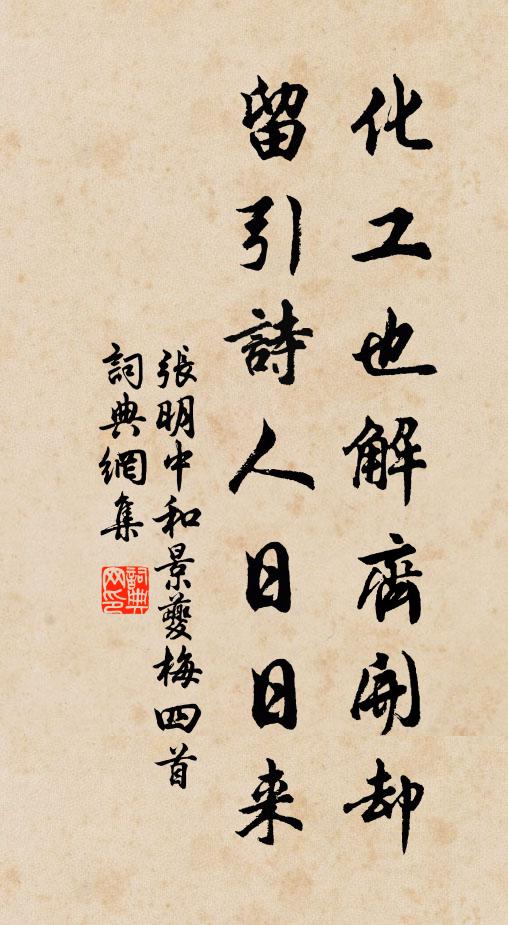 化工也解齊開却
留引詩人日日来
張明中和景夔梅四首
詞典網集
詞典網印